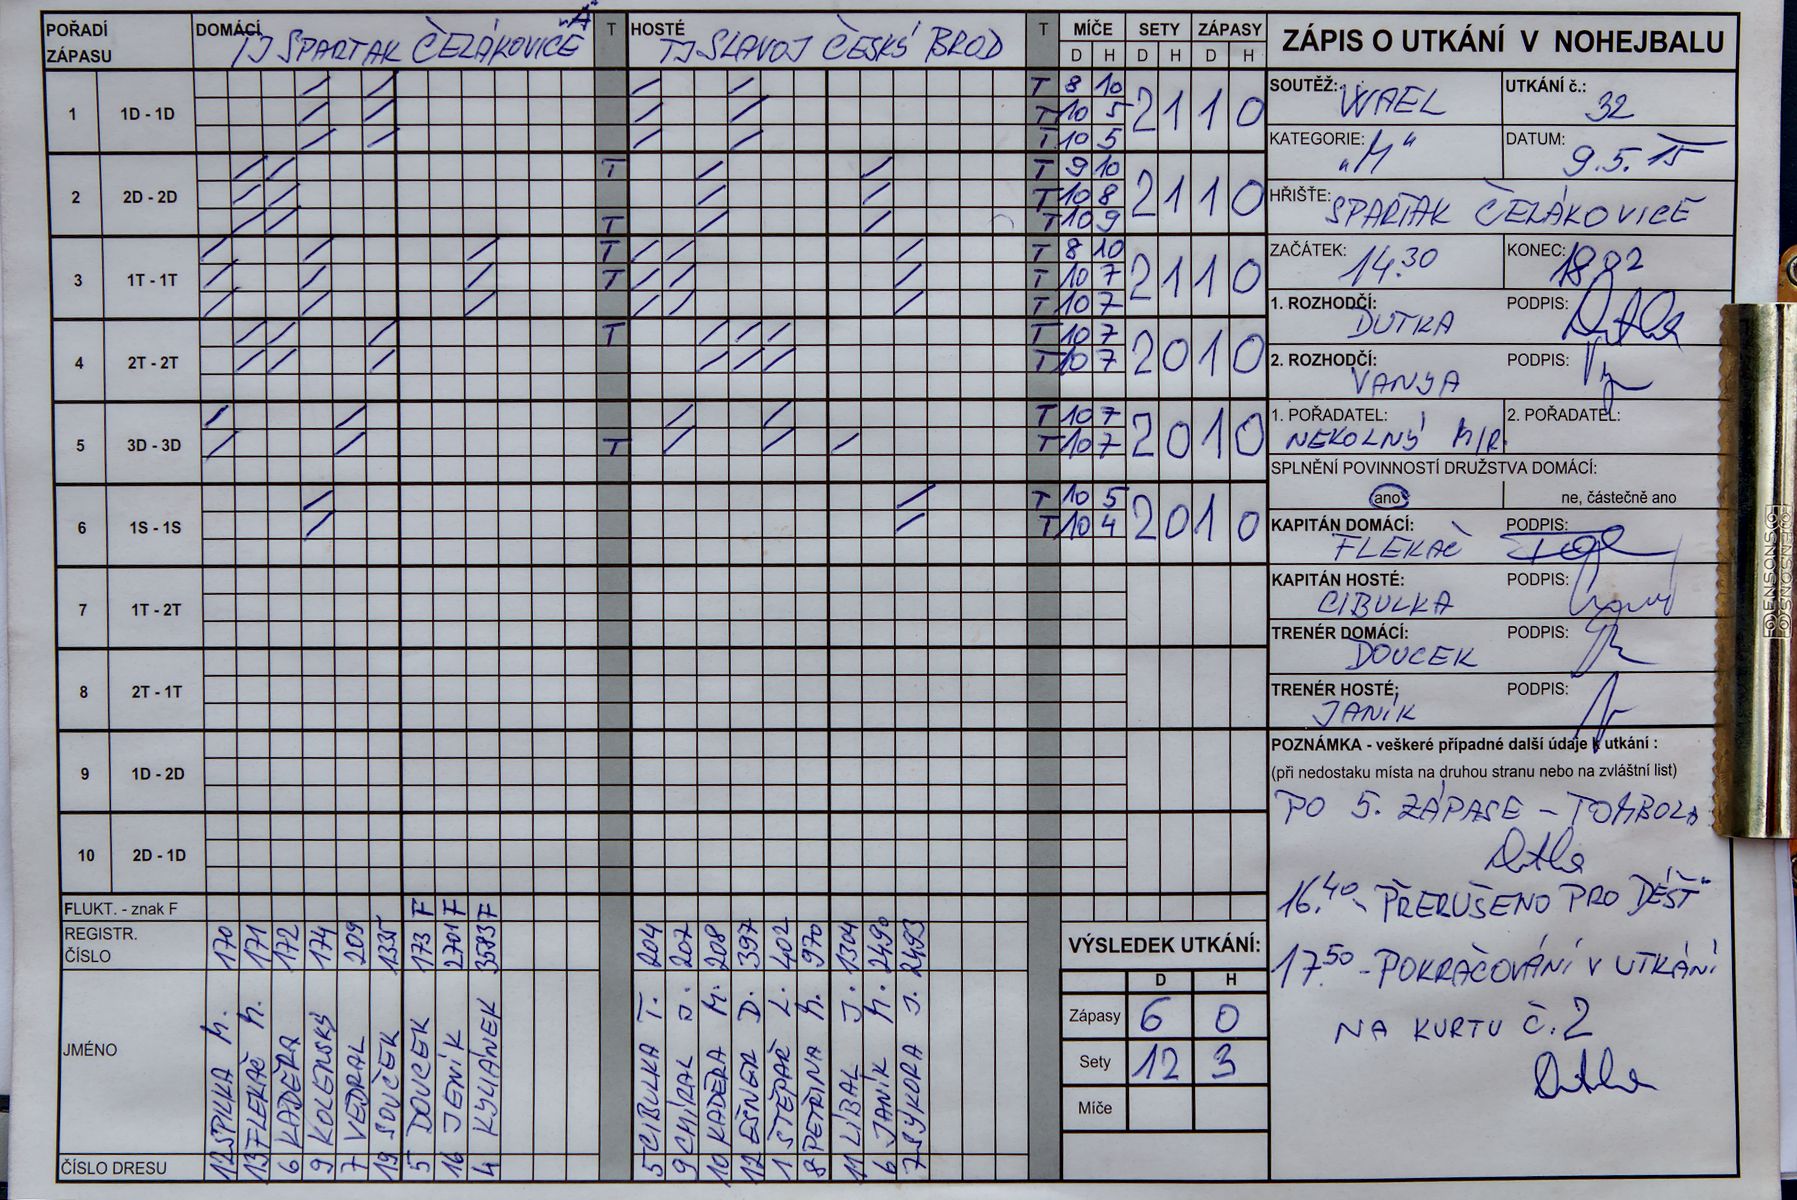 POŘADÍ ZÁPASU
DOMÁCÍ TJ SPARTAK ČELÁKOVICE "A"
T
HOSTÉ TJ SLAVOJ ČESKÝ BROD
T
MÍČE SETY ZÁPASY
D H D H D H
1 1D - 1D T 8 10 2 1 1 0
T 10 5
T 10 5
2 2D - 2D T T 9 10 2 1 1 0
T 10 8
T T 10 9
3 1T - 1T T T 8 10 2 1 1 0
T T 10 7
T 10 7
4 2T - 2T T T 10 7 2 0 1 0
T 10 7
5 3D - 3D T 10 7 2 0 1 0
T T 10 7
6 1S - 1S T 10 5 2 0 1 0
T 10 4
7 1T - 2T
8 2T - 1T
9 1D - 2D
10 2D - 1D
FLUKT. - znak F F F F
REGISTR. ČÍSLO 170 171 172 174 209 1335 173 2701 3583 204 207 208 397 402 970 1304 2490 2493
JMÉNO SPILKA M. FLEKAČ M. KADEŘA KOLENSKÝ VEDRAL SOUČEK DOUCEK JENÍK KYLIÁNEK CIBULKA T. CHÍRAL J. KADEŘA M. EŠNER D. ŠTĚPÁŘ L. PETŘINA M. LÍBAL J. JANÍK M. SÝKORA J.
ČÍSLO DRESU 12 13 6 9 7 19 5 16 4 5 9 10 12 1 8 11 6 7
VÝSLEDEK UTKÁNÍ:
D H
Zápasy 6 0
Sety 12 3
Míče
ZÁPIS O UTKÁNÍ V NOHEJBALU
SOUTĚŽ: WAEL UTKÁNÍ č.: 32
KATEGORIE: "M" DATUM: 9.5.15
HŘIŠTE: SPARTAK ČELÁKOVICE
ZAČÁTEK: 14.30 KONEC:
1. ROZHODČÍ: DUTKA PODPIS:
2. ROZHODČÍ: VANYA PODPIS:
1. POŘADATEL: NEKOLNÝ MIR. 2. POŘADATEL:
SPLNĚNÍ POVINNOSTÍ DRUŽSTVA DOMÁCÍ:
ano ne, částečně ano
KAPITÁN DOMÁCÍ: FLEKAČ PODPIS:
KAPITÁN HOSTÉ: CIBULKA PODPIS:
TRENÉR DOMÁCÍ: DOUCEK PODPIS:
TRENÉR HOSTÉ: JANÍK PODPIS:
POZNÁMKA - veškeré případné další údaje k utkání :
(při nedostaku místa na druhou stranu nebo na zvláštní list)
PO 5. ZÁPASE - TOMBOLA
16.40 - PŘERUŠENO PRO DÉŠŤ
17.50 - POKRAČOVÁNÍ V UTKÁNÍ
NA KURTU Č. 2